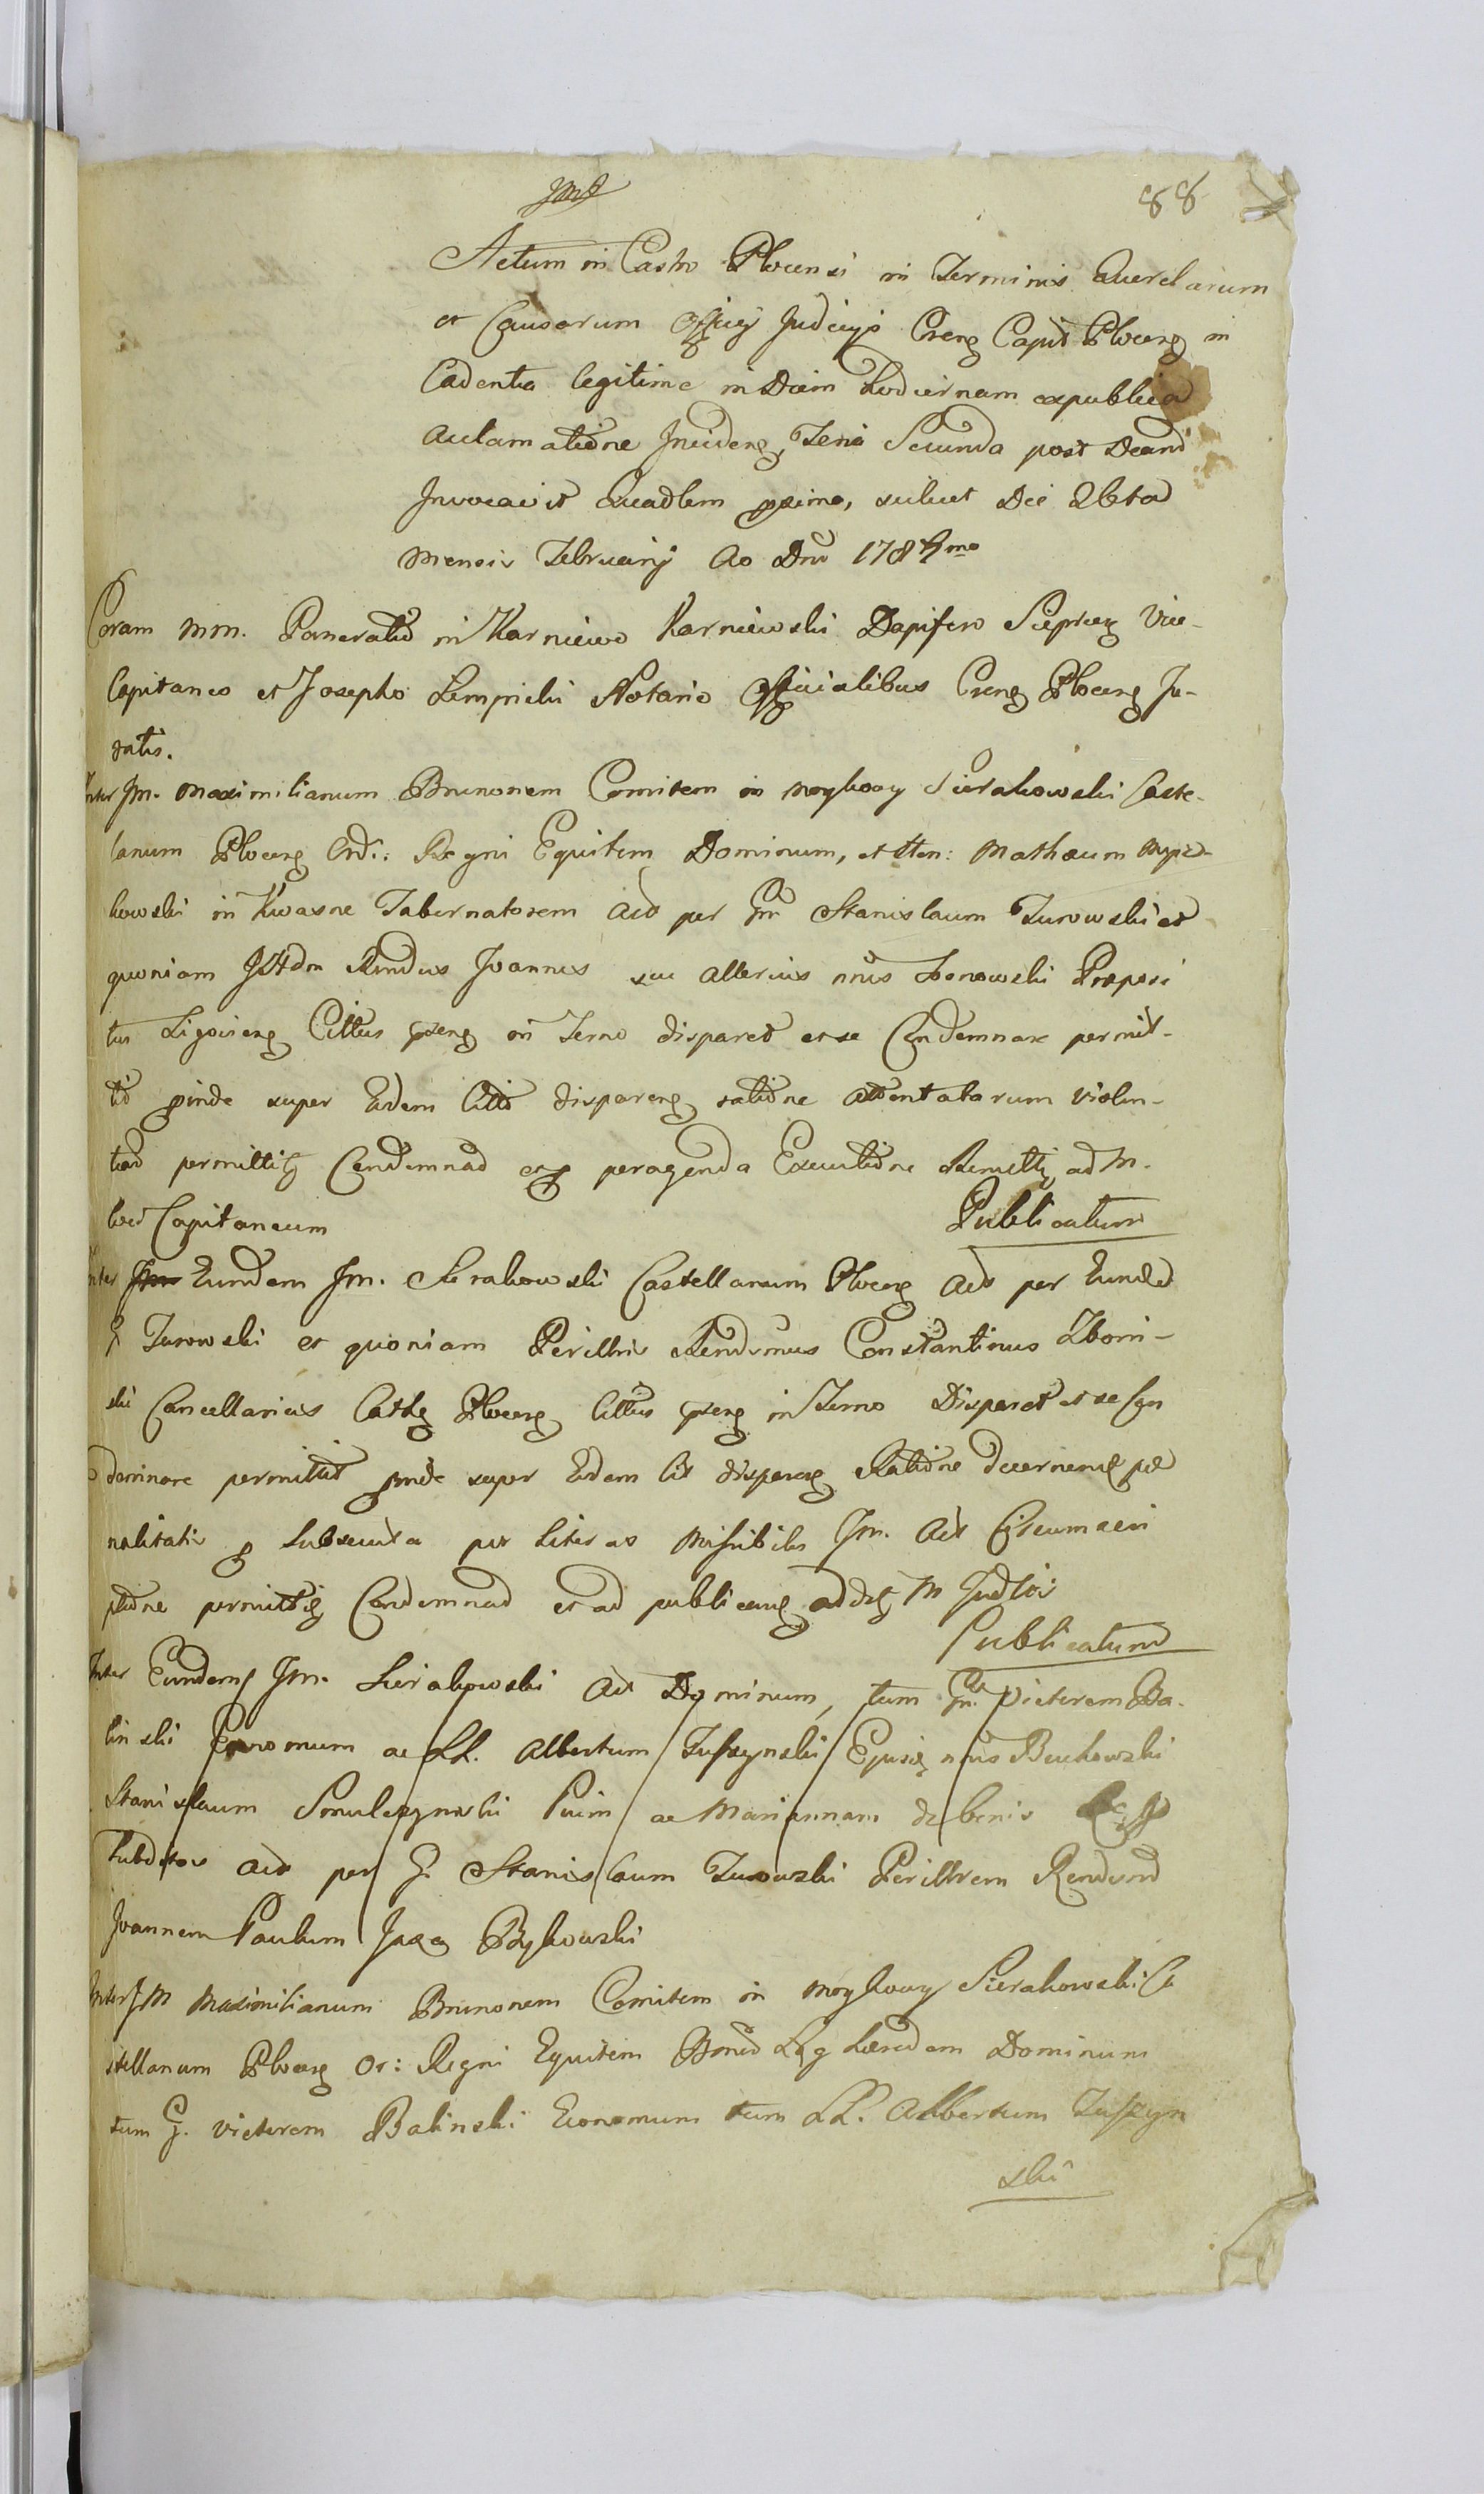 88
Actum in Castro Plocensi in Terminis Querelarum
et Causarum Officij Judicijs Cren Capit Plocen in
Cadentia legitime in Diem hodiernam expublica
Aclamatione Inciden, Feria Secunda post Dcam
Invocavit Quadlem proxima, scilicet Die
Mensis Februarij Ao Dni 178
Coram mm. Pancratio in Karniewo Karniewski Dapifero Sieprcen Vice-
Capitaneo et Josepho Lempicki Notario Officialibus Cren Plocen Ju-
ratis.
Inter Jm. Maximilianum Brunonem Comitem in Sierakowski Caste-
lanum Plocen Ord: Regni Equitem Dominum, et Hon: Mathæum
kowski in Kwasne Tabernatorem Act per Gm Stanislaum Turowski et
quoniam Rendus Joannes seu Alterius nnis Præposi
tus Cittus pren in Terno disparet et se Condemnare permit-
tit proinde super Eodem Citto disparen ratione Attentatarum violen-
tiad permittit Condemnad et p peragenda Executione Remitti ad M.
loci Capitaneum Publicatum
Inter Eundem Jm. Sierakowski Castellanum Plocen Act per Eunded
G Turowski et quoniam Perillris Rendsmus Constantinus Zboin-
ski Cancellarius Cathe Plocen Cittus pren in Terno Disparet et se Con
demnare permittit proinde super Eodem Cit disparen Ratione decernend pœ
nalitatis p Subsecuta per Literas Missibiles Jm. Act Circumscri
ptione permittit Condemnad et ad publicand M Judtoi
Publicatum
Inter Eundem Jm. Sierakowski Act Dominum, tum Gm. Victorem Ba-
linski Economum ac LL. Albertum Tuszynski nnis Buchowski
Stanislaum Smulczynski Puim ac Mariannam de bonis
Subditos Act per G. Stanislaum Turowski Perillrem Rendum
Joannem Paulum Jaxa Bykowski
Inter JM Maximilianum Brunonem Comitem in Sierakowski Ca
stellanum Plocen Or: Regni Equitem Hæredem Dominum
tum G. Victorem Balinski Economum tum LL. Albertum Tuszyn
ski